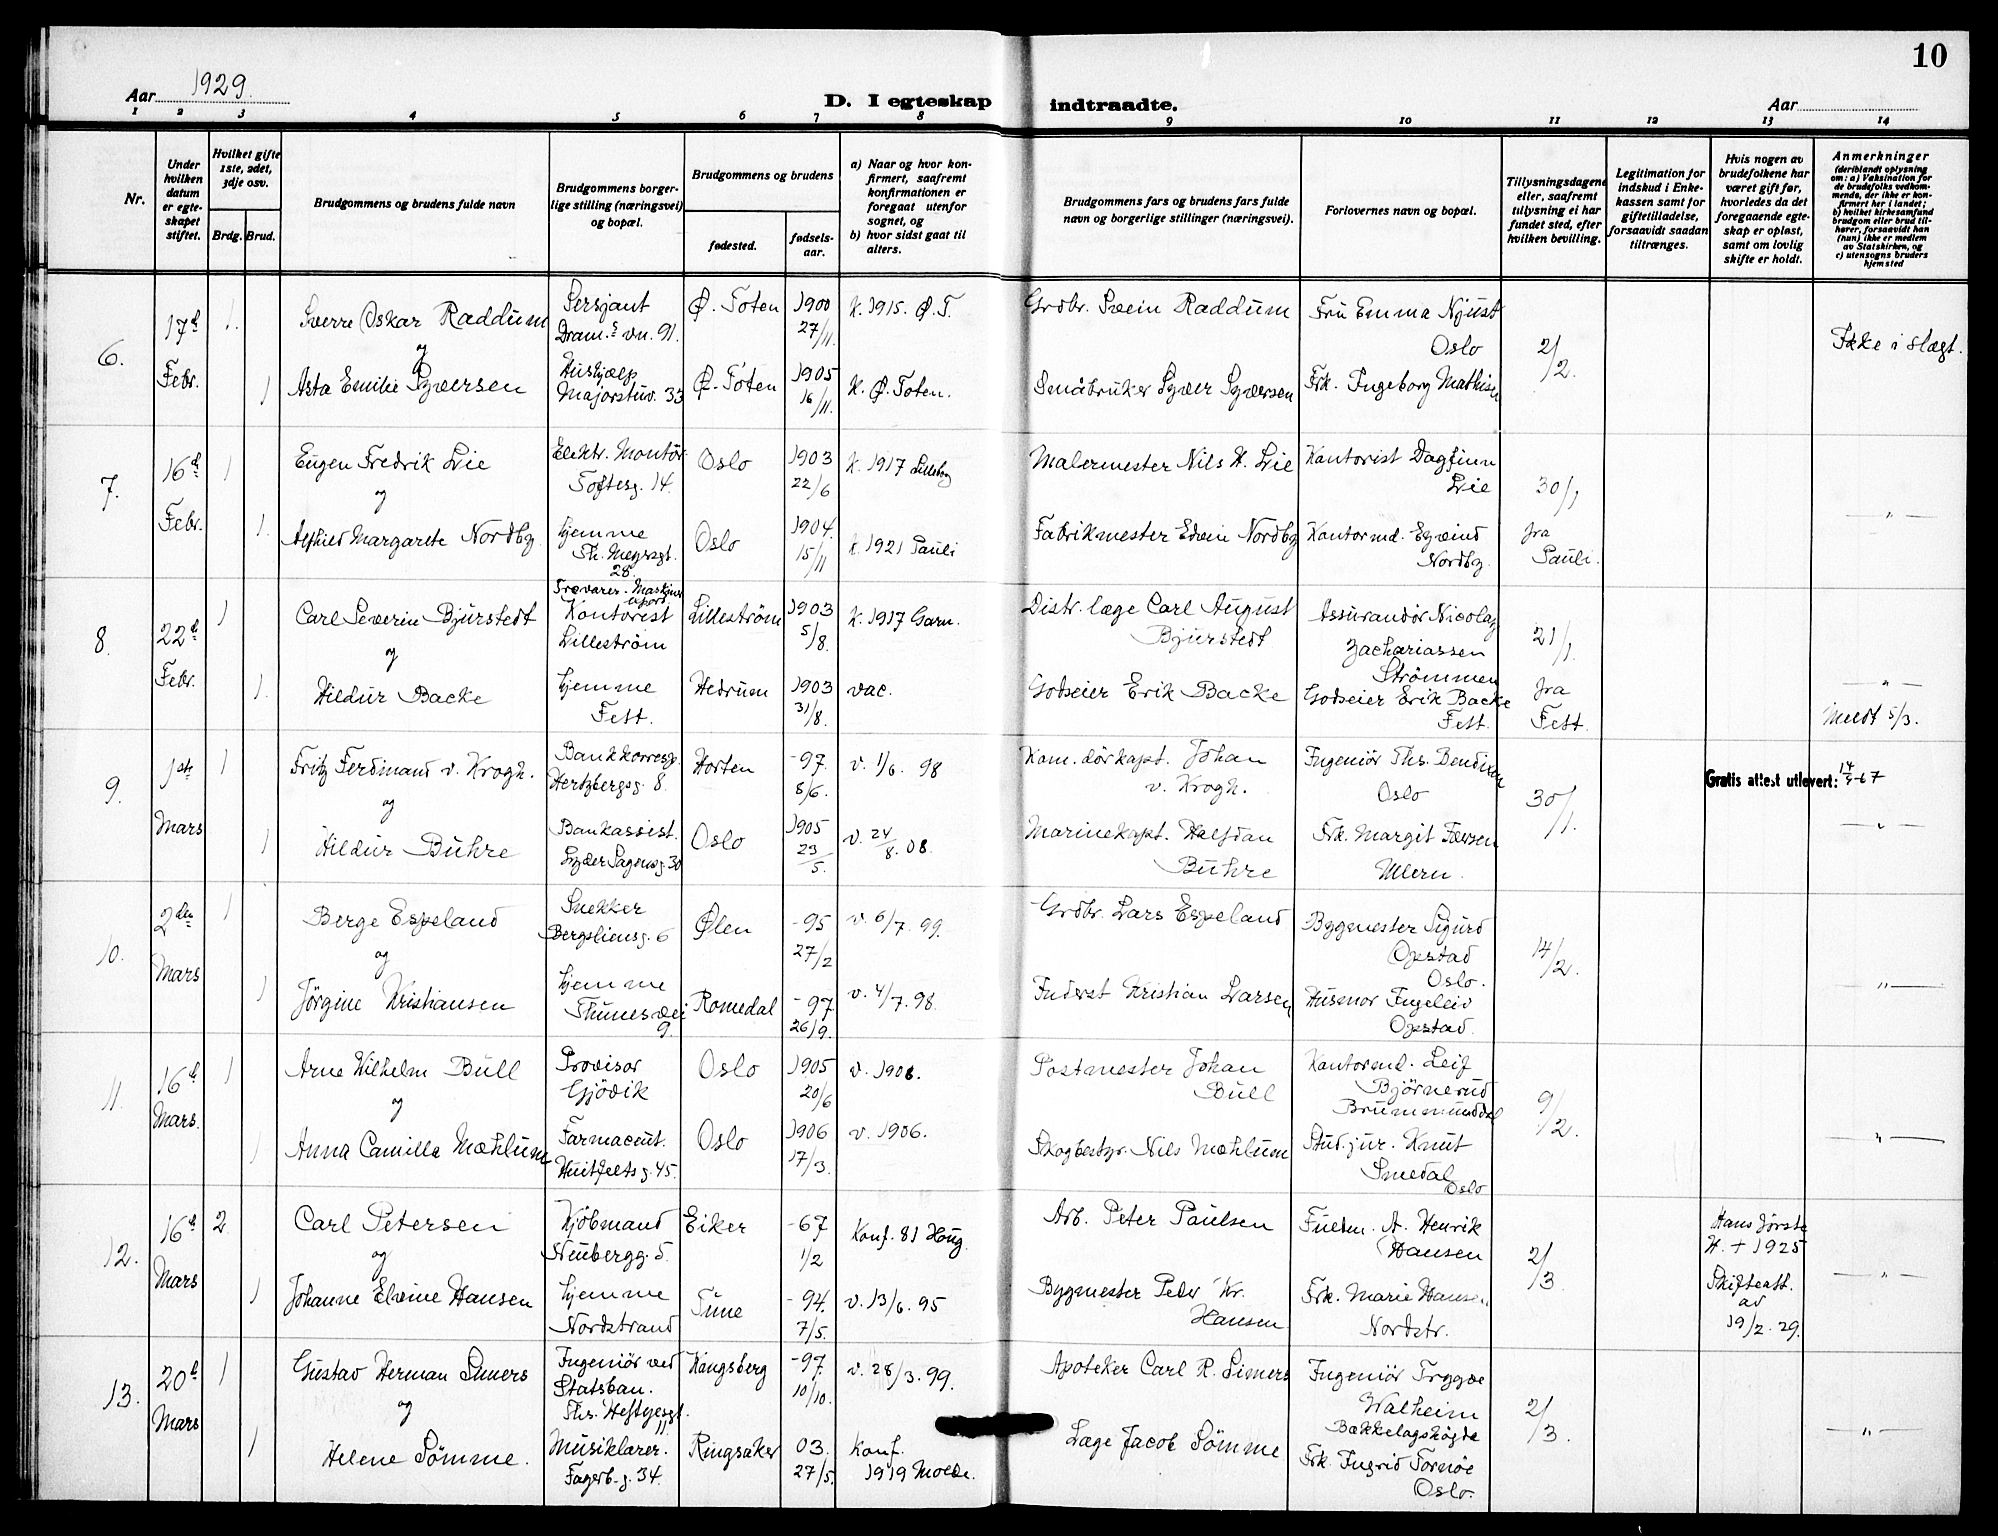 10
Aar 1929.
D. I egteskap indtraadte.
Aar
1 2 3 4 5 6 7 8 9 10 11 12 13 14
Nr.
Under hvilken datum er egteskapet stiftet.
Hvilket gifte 1ste, 2det, 3dje osv.
Brdg. Brud.
Brudgommens og brudens fulde navn
Brudgommens borgerlige stilling (næringsvei) og bopæl.
Brudgommens og brudens
fødested.
fødselsaar.
a) Naar og hvor konfirmert, saafremt konfirmationen er foregaat utenfor sognet, og
b) hvor sidst gaat til alters.
Brudgommens fars og brudens fars fulde navn og borgerlige stillinger (næringsvei).
Forlovernes navn og bopæl.
Tillysningsdagene eller, saafremt tillysning ei har fundet sted, efter hvilken bevilling.
Legitimation for indskud i Enkekassen samt for giftetilladelse, forsaavidt saadan tiltrænges.
Hvis nogen av brudefolkene har været gift før, hvorledes da det foregaaende egteskap er opløst, samt om lovlig skifte er holdt.
Anmerkninger (deriblandt oplysning om: a) Vaksination for de brudefolks vedkommende, der ikke er konfirmert her i landet; b) hvilket kirkesamfund brudgom eller brud tilhører, forsaavidt han (hun) ikke er medlem av Statskirken, og c) utensogns bruders hjemsted
6. 17d Febr. 1. Sverre Oskar Raddum Sersjant Dram.s vn. 91. Ø. Toten 1900 27/11. K. 1915. Ø. T. Grdbr. Svein Raddum Fru Emma Njust Oslo 2/2. Ikke i slægt.
og
1 Asta Emilie Syversen Hushjælp Majorstuv. 33 Ø. Toten 1905 16/11. K. Ø. Toten. Småbruker Syver Syversen Frk. Ingeborg Mathisen
7. 16d Febr. 1 Eugen Fredrik Lie Elektr. Montør Toftesg. 14. Oslo 1903 22/6 K. 1917 Malermester Nils H. Lie Kontorist Dagfinn Lie 30/1
og
1. Alfhild Margarete Nordby hjemme Th. Meyersgt. 28. Oslo 1904. 15/11 K. 1921 Pauli Fabrikmester Edvin Nordby Kontormd. Eyvind Nordby. fra Pauli. — " —
8. 22d Febr. 1 Carl Severin Bjurstedt Trævarer. Kontorist Lilleström Lilleström 1903 5/8. K. 1917 Garn. Distr. læge Carl August Bjurstedt Assurandör Nicolay Zachariassen Strömmen 21/1.
og
1. Hildur Backe hjemme Fett. Hedrum 1903 31/8. vac. Godseier Erik Backe Godseier Erik Backe Fett. fra Fett. — " — Meldt 5/3.
9. 1ste Mars 1 Fritz Ferdinand v. Krogh. Bankkorresp. Hertzbergsg. 8. Horten -97. 5/6. v. 1/6. 98 Kom.dörkapt. Johan v. Krogh. Ingeniör Ths. Bendixen Oslo 30/1. Gratis attest utlevert:
og
1 Hildur Buhre Bankassist. Lyder Sagensg. 30 Oslo 1905 23/5. v. 24/8. 08. Marinekapt. Halfdan Buhre Frk. Margit Ullern. — " —
10. 2den Mars 1 Berge Espeland Snekker Bergsliensg. 6 Ølen -95 27/2 v. 6/7. 99. Grdbr. Lars Espeland Bygmester Sigurd Opstad Oslo. 14/2.
og
1 Jörgine Kristiansen hjemme Thunes vei 9. Romedal -97 26/9. v. 4/7. 98. Inderst Kristian Larsen Husmor Ingeleiv Opstad. — " —
11. 16d Mars. 1 Arne Wilhelm Bull Provisor Gjövik Oslo 1905 20/6 v. 1906. Postmester Johan Bull Kontormd. Leif Björnerud Brummunddal 9/2.
og
1 Anna Camilla Mæhlum Farmaceut. Huitfeltsg. 45. Oslo 1906 17/3. v. 1906. Skogbestyr. Nils Mæhlum Stud. jur. Knut Smedal Oslo — " —
12. 16d Mars 2 Carl Petersen Kjöbmand Neubergg. 5. Eiker -67 1/2 Konf. 81 Haug. Arb. Peter Paulsen A. Henrik Hansen 2/3 Hans förste H. + 1925
og
1 Johanne Elvine Hansen hjemme Nordstrand Tune -94. 7/5. v. 13/6. 95 Bygmester Peder Kr. Hansen Frk. Marie Hansen Nordstr. Skifteatt. av 19/2. 29. — " —
13. 20d Mars 1 Gustav Herman Simers Ingeniör ved Statsban. Ths. Heftyesgt. 11. Kongsberg -97. 10/10. v. 28/3. 99. Apoteker Carl R. Simers Ingeniör Trygve Walheim Bækkelagshögda 2/3.
og
1 Helene Sömme. Musiklærer. Fagerb.g. 34. Ringsaker 03. 27/5. Konf. 1919 Molde. Læge Jacob Sömme Frk. Ingrid Tornöe Oslo. — " —